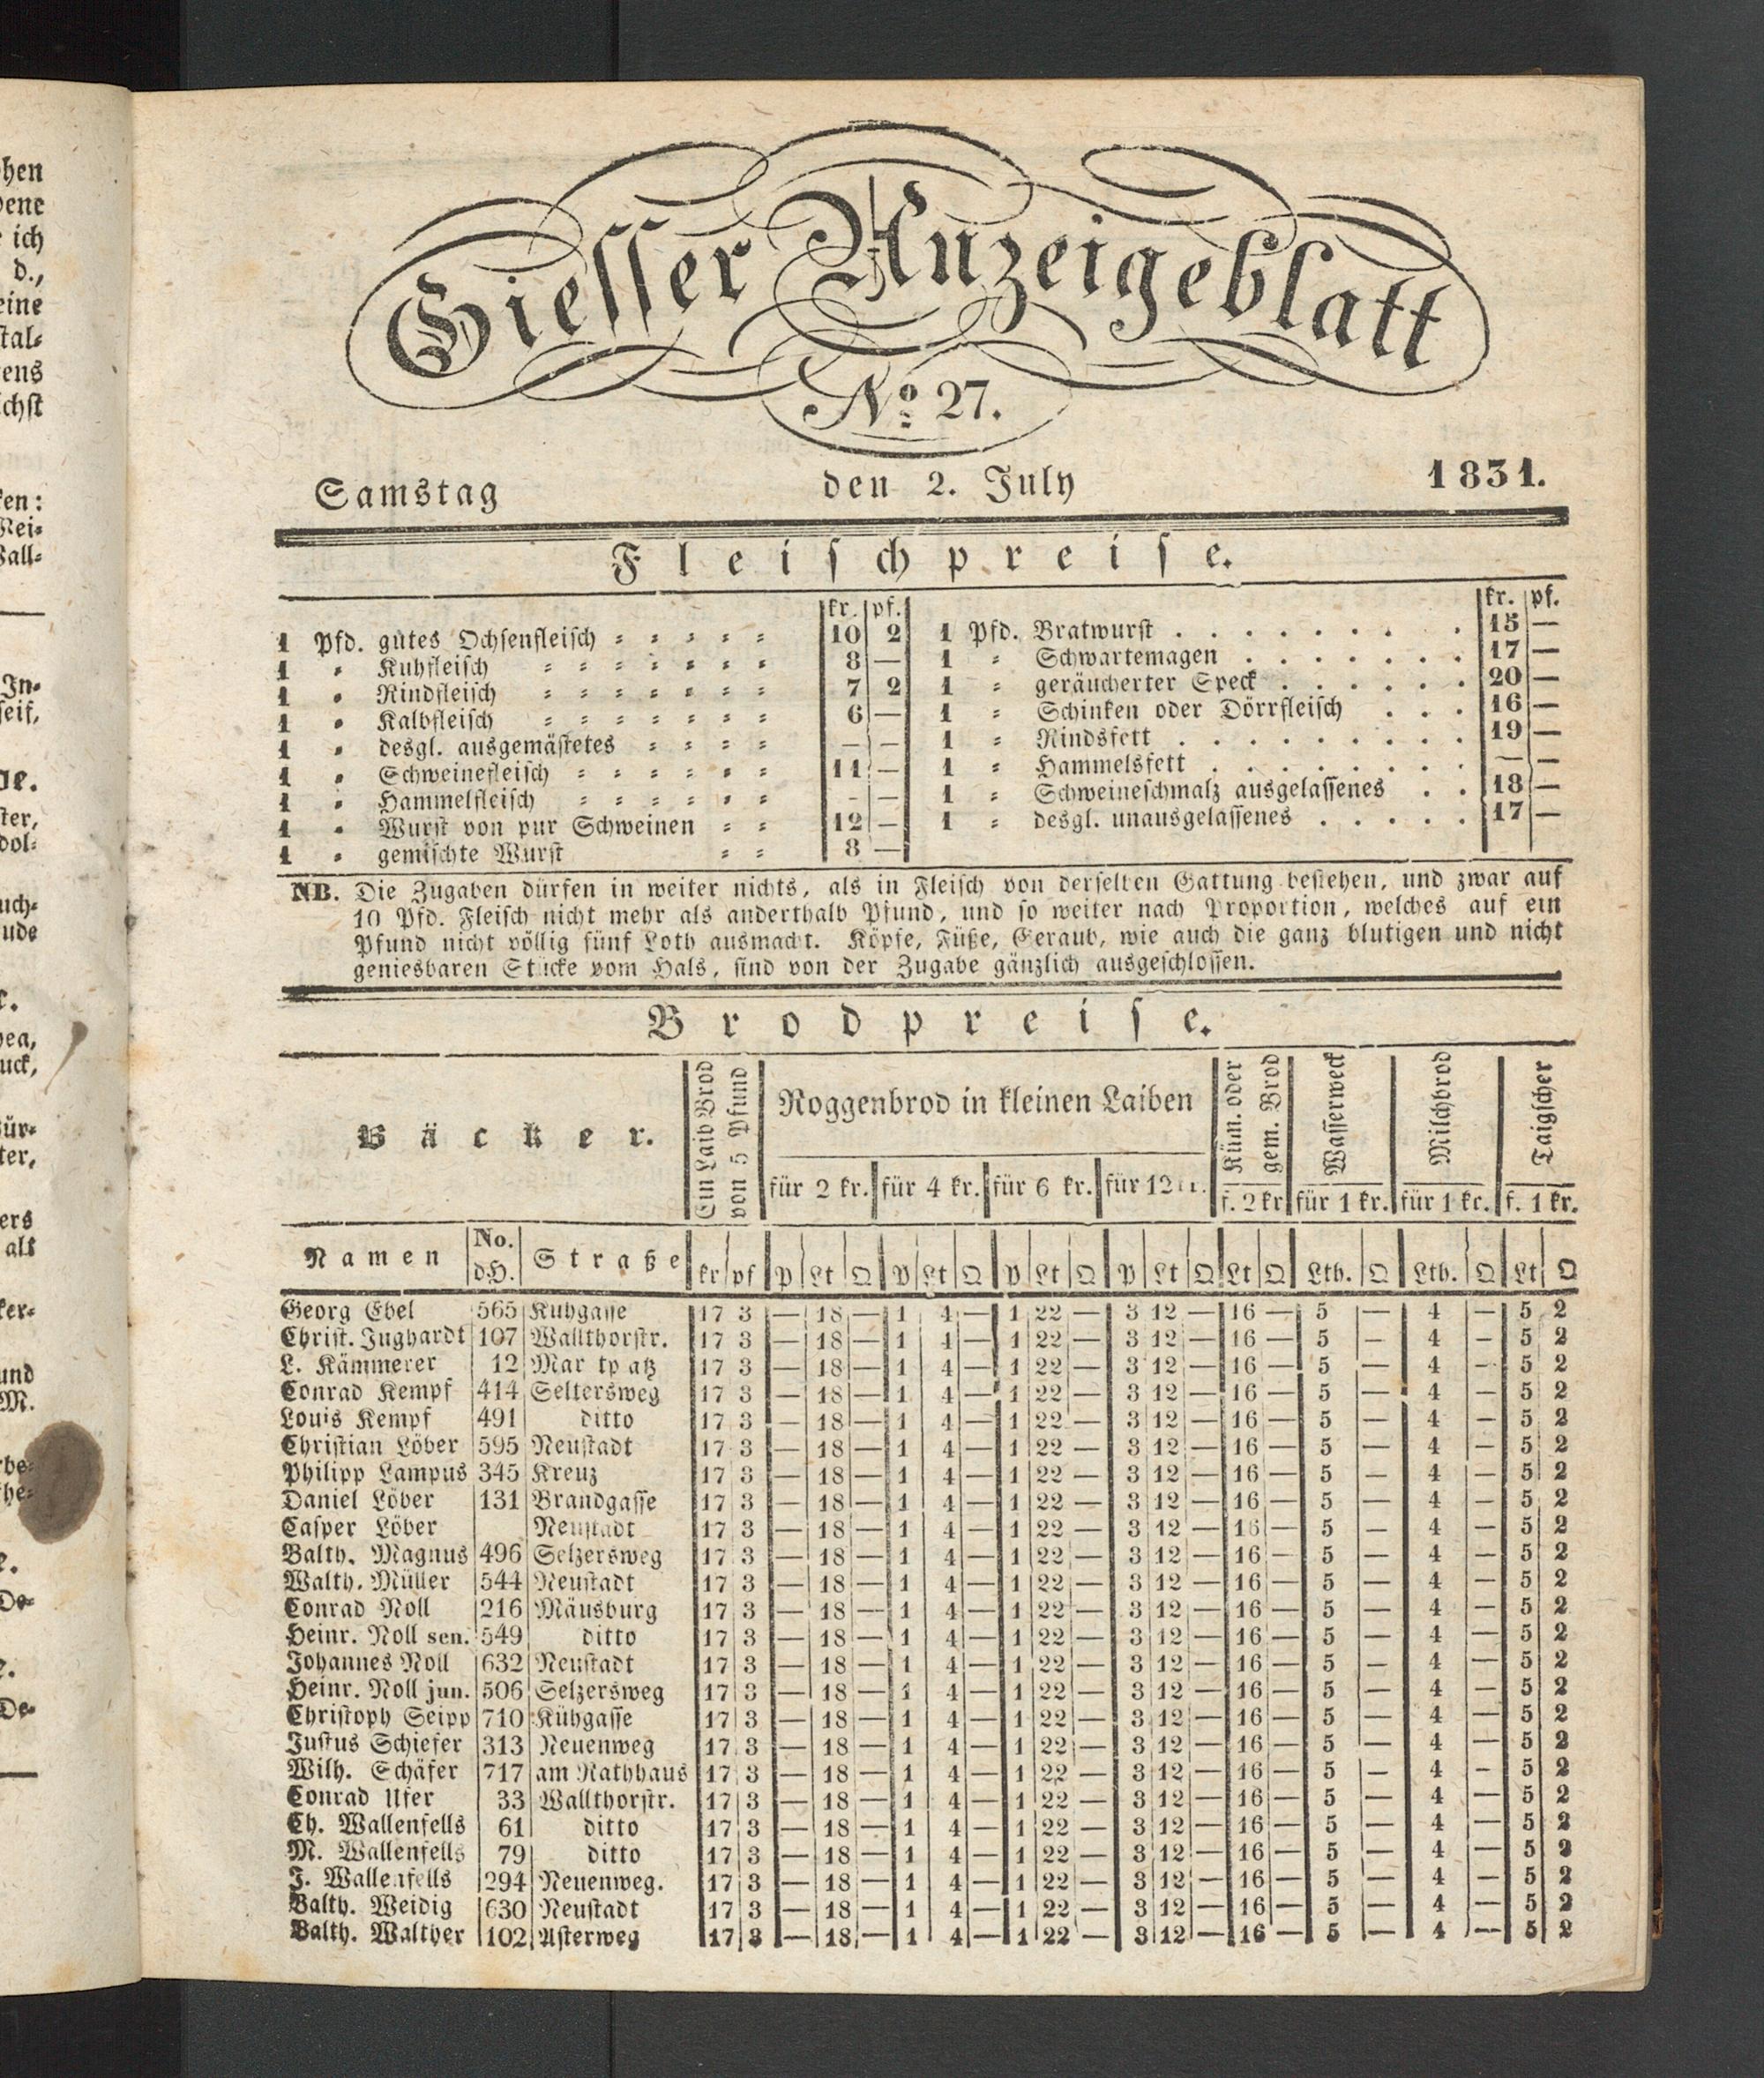 Giesser Anzeigeblatt
No. 27.
Samstag den 2. July 1831.
Fleischpreise.
kr. pf.
1 Pfd. gutes Ochsenfleisch 10 2
1 " Kuhfleisch 8 —
1 " Rindfleisch 7 2
1 " Kalbfleisch 6 —
1 " desgl. ausgemästetes — —
1 " Schweinefleisch 11 —
1 " Hammelfleisch - —
1 " Wurst von pur Schweinen 12 —
1 " gemischte Wurst 8 —
kr. pf.
1 Pfd. Bratwurst 15 —
1 " Schwartemagen 17 —
1 " geräucherter Speck 20 —
1 " Schinken oder Dörrfleisch 16 —
1 " Rindsfett 19 —
1 " Hammelsfett — —
1 " Schweineschmalz ausgelassenes 18 —
1 " desgl. unausgelassenes 17 —
NB. Die Zugaben dürfen in weiter nichts, als in Fleisch von derselben Gattung bestehen, und zwar auf
10 Pfd. Fleisch nicht mehr als anderthalb Pfund, und so weiter nach Proportion, welches auf ein
Pfund nicht völlig fünf Loth ausmacht. Köpfe, Füße, Geraub, wie auch die ganz blutigen und nicht
geniesbaren Stücke vom Hals, sind von der Zugabe gänzlich ausgeschlossen.
Brodpreise.
Bäcker.
Ein Laib Brod
von 5 Pfund
Roggenbrod in kleinen Laiben
für 2 kr. für 4 kr. für 6 kr. für 12 kr.
Küm. oder
gem. Brod
f. 2 kr
Wasserweck
für 1 kr.
Milchbrod
für 1 kr.
Taigscher
f. 1 kr.
Namen No. d.H. Straße kr pf P Lt Q P Lt Q P Lt Q P Lt Q Lt Q Lth. Q Lth. Q Lt Q
Georg Ebel 565 Kuhgasse 17 3 — 18 — 1 4 — 1 22 — 3 12 — 16 — 5 — 4 — 5 2
Christ. Jughardt 107 Wallthorstr. 17 3 — 18 — 1 4 — 1 22 — 3 12 — 16 — 5 — 4 — 5 2
L. Kämmerer 12 Mar tp atz 17 3 — 18 — 1 4 — 1 22 — 3 12 — 16 — 5 — 4 — 5 2
Conrad Kempf 414 Seltersweg 17 3 — 18 — 1 4 — 1 22 — 3 12 — 16 — 5 — 4 — 5 2
Louis Kempf 491 ditto 17 3 — 18 — 1 4 — 1 22 — 3 12 — 16 — 5 — 4 — 5 2
Christian Löber 595 Neustadt 17 3 — 18 — 1 4 — 1 22 — 3 12 — 16 — 5 — 4 — 5 2
Philipp Lampus 345 Kreuz 17 3 — 18 — 1 4 — 1 22 — 3 12 — 16 — 5 — 4 — 5 2
Daniel Löber 131 Brandgasse 17 3 — 18 — 1 4 — 1 22 — 3 12 — 16 — 5 — 4 — 5 2
Casper Löber Neustadt 17 3 — 18 — 1 4 — 1 22 — 3 12 — 16 — 5 — 4 — 5 2
Balth. Magnus 496 Selzersweg 17 3 — 18 — 1 4 — 1 22 — 3 12 — 16 — 5 — 4 — 5 2
Walth. Müller 544 Neustadt 17 3 — 18 — 1 4 — 1 22 — 3 12 — 16 — 5 — 4 — 5 2
Conrad Noll 216 Mäusburg 17 3 — 18 — 1 4 — 1 22 — 3 12 — 16 — 5 — 4 — 5 2
Heinr. Noll sen. 549 ditto 17 3 — 18 — 1 4 — 1 22 — 3 12 — 16 — 5 — 4 — 5 2
Johannes Noll 632 Neustadt 17 3 — 18 — 1 4 — 1 22 — 3 12 — 16 — 5 — 4 — 5 2
Heinr. Noll jun. 506 Selzersweg 17 3 — 18 — 1 4 — 1 22 — 3 12 — 16 — 5 — 4 — 5 2
Christoph Seipp 710 Kühgasse 17 3 — 18 — 1 4 — 1 22 — 3 12 — 16 — 5 — 4 — 5 2
Justus Schiefer 313 Neuenweg 17 3 — 18 — 1 4 — 1 22 — 3 12 — 16 — 5 — 4 — 5 2
Wilh. Schäfer 717 am Rathhaus 17 3 — 18 — 1 4 — 1 22 — 3 12 — 16 — 5 — 4 — 5 2
Conrad Ufer 33 Wallthorstr. 17 3 — 18 — 1 4 — 1 22 — 3 12 — 16 — 5 — 4 — 5 2
Ch. Wallenfells 61 ditto 17 3 — 18 — 1 4 — 1 22 — 3 12 — 16 — 5 — 4 — 5 2
M. Wallenfells 79 ditto 17 3 — 18 — 1 4 — 1 22 — 3 12 — 16 — 5 — 4 — 5 2
J. Wallenfells 294 Neuenweg. 17 3 — 18 — 1 4 — 1 22 — 3 12 — 16 — 5 — 4 — 5 2
Balth. Weidig 630 Neustadt 17 3 — 18 — 1 4 — 1 22 — 3 12 — 16 — 5 — 4 — 5 2
Balth. Walther 102 Asterweg 17 3 — 18 — 1 4 — 1 22 — 3 12 — 16 — 5 — 4 — 5 2